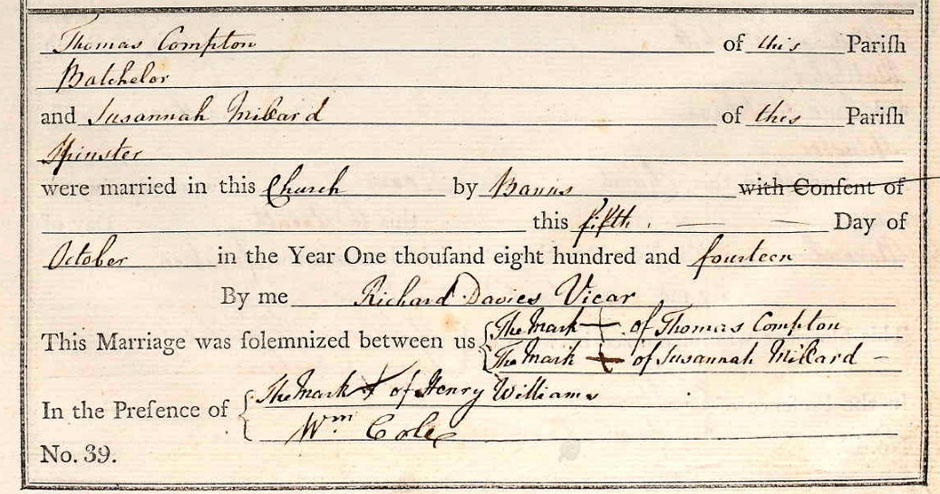 Thomas Compton of this Pariſh
Batchelor
and Susannah Millard of this Pariſh
Spinster
were married in this Church by Banns with Conſent of
this fifth. Day of
October in the Year One thouſand eight hundred and fourteen
By me Richard Davies Vicar
This Marriage was ſolemnized between us
The Mark + of Thomas Compton
The Mark + of Susannah Millard –
In the Preſence of
The Mark + of Henry Williams
Wm Cole
No. 39.